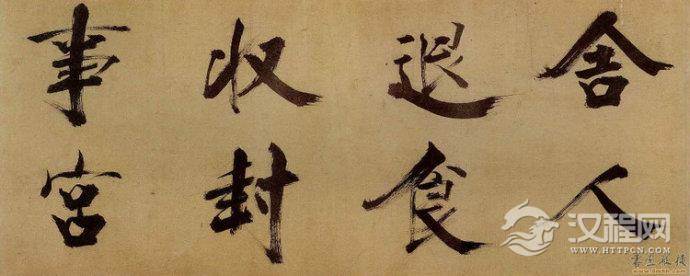 舍人
退食
収封
事宮
汉程网
WWW.HTTPCN.COM